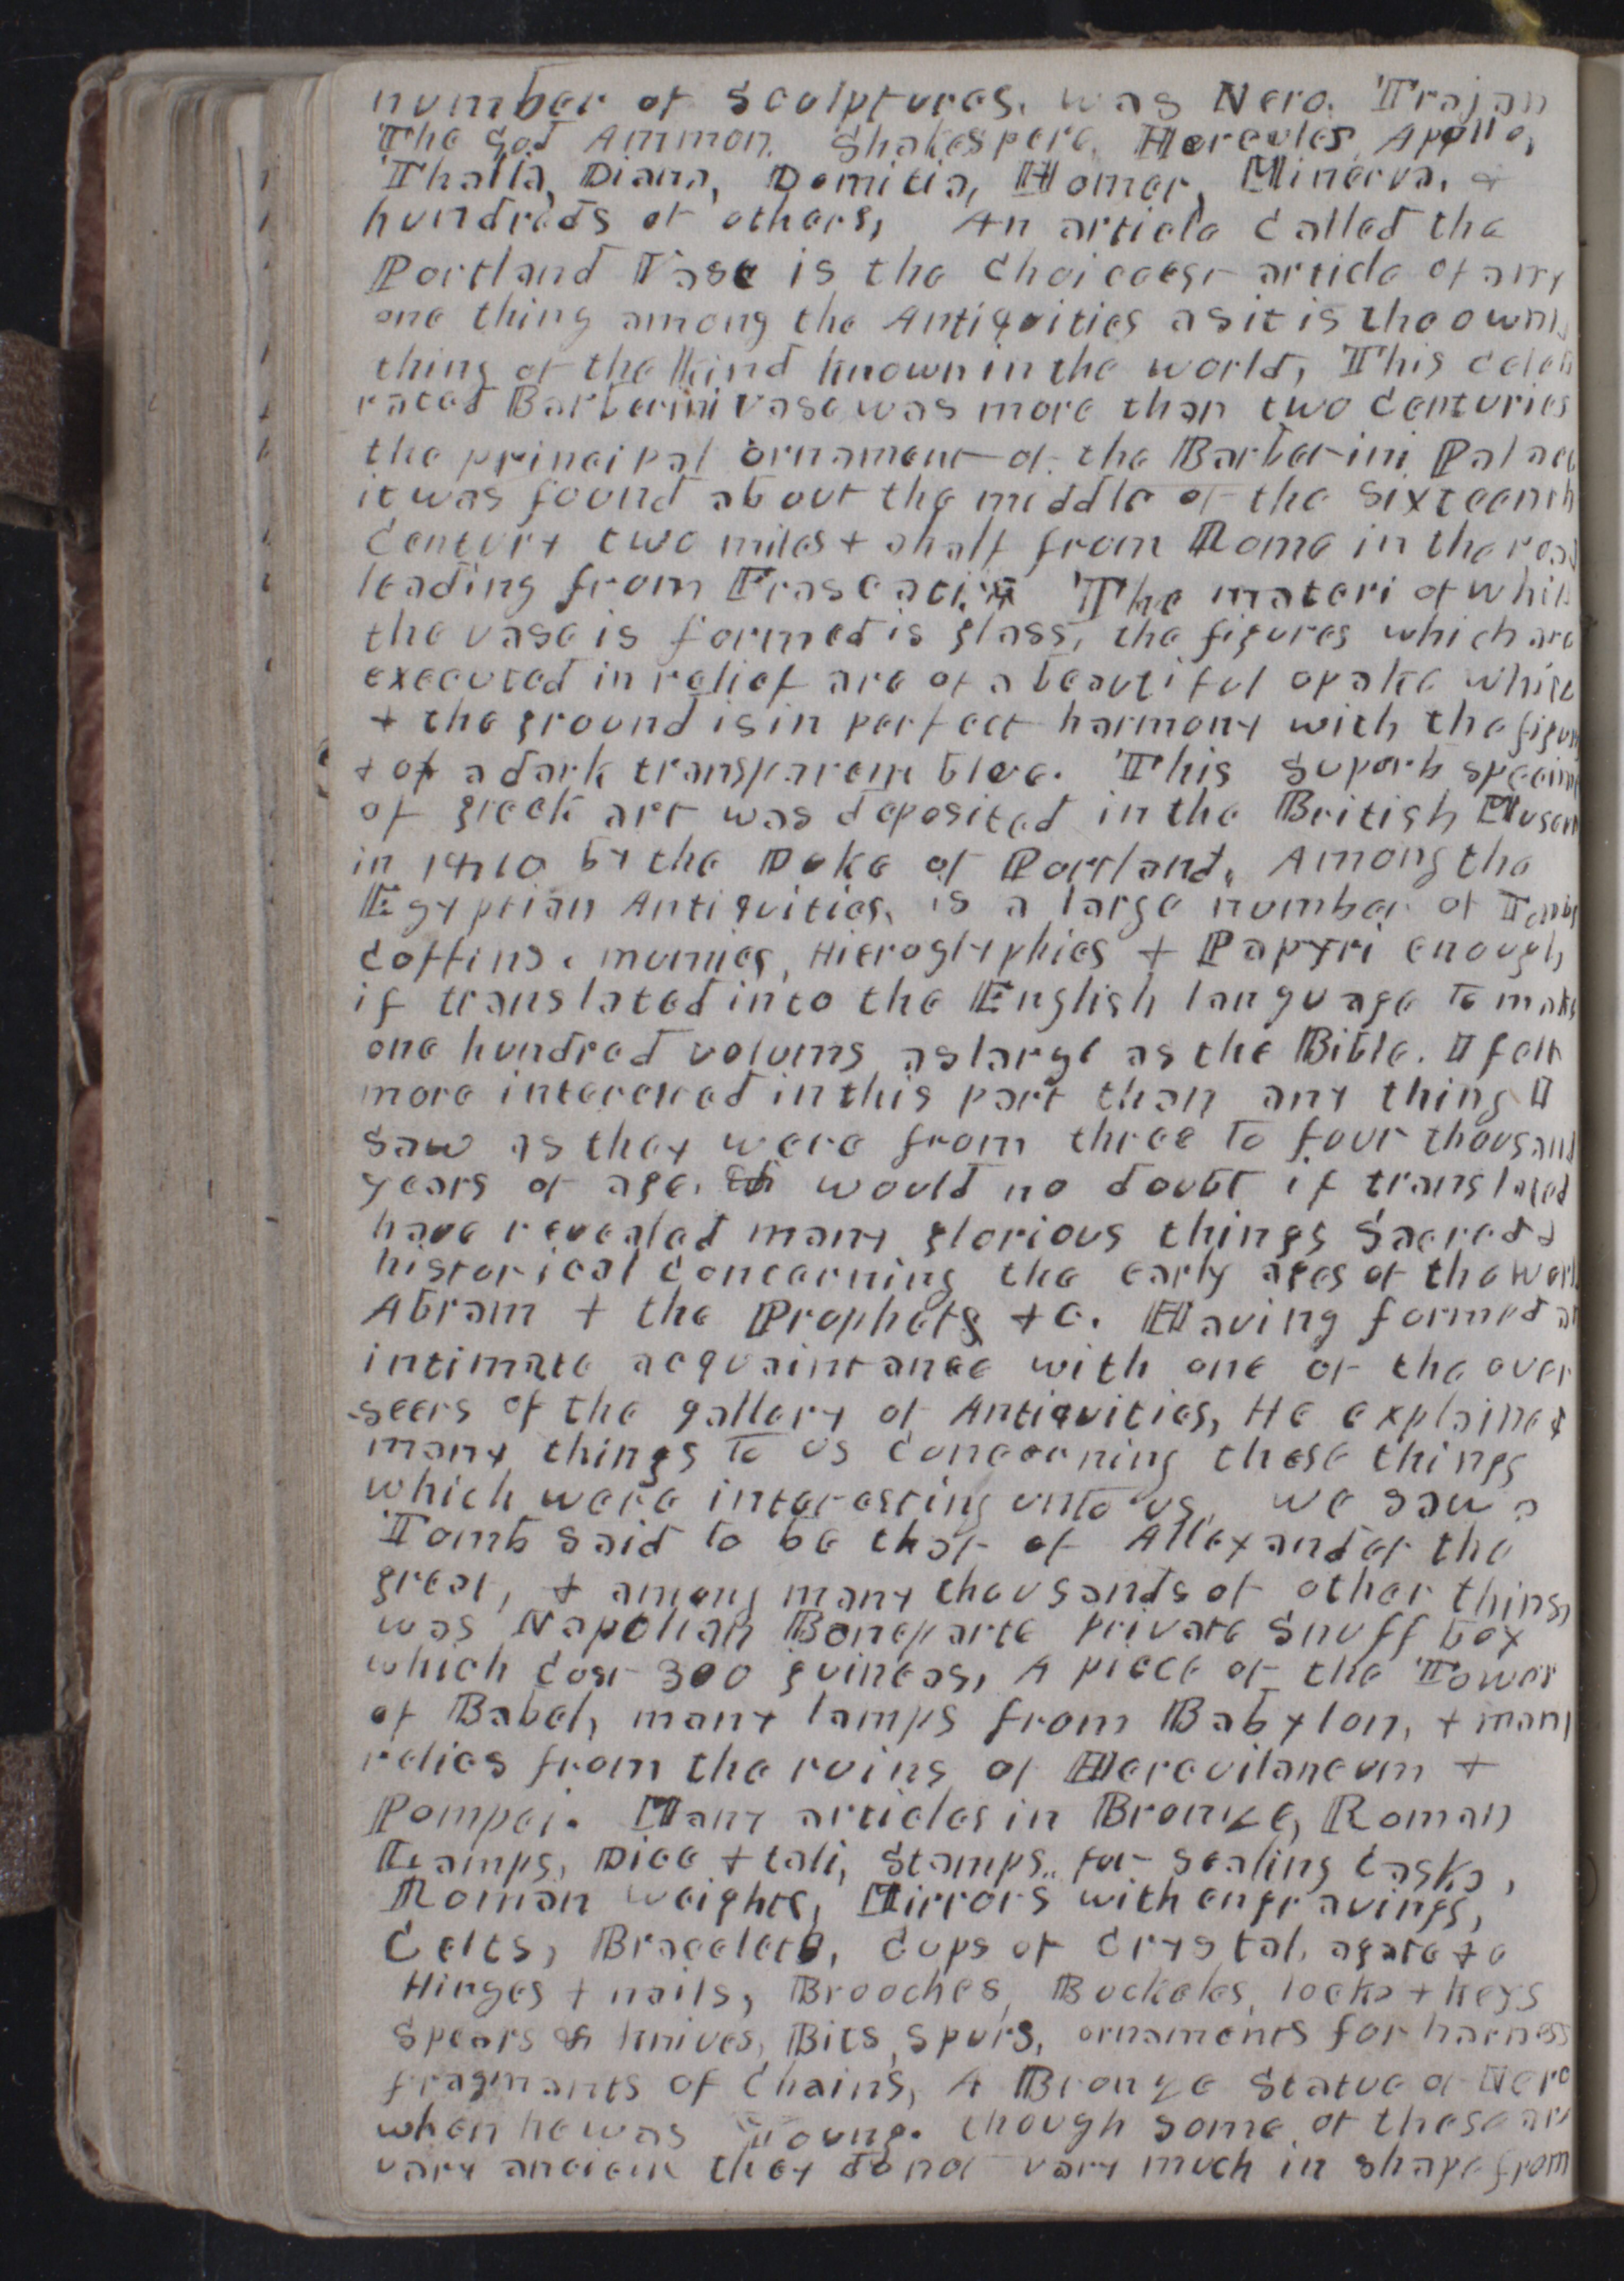 number of sculptures. was Nero. Trajan
The god Ammon. Shakespere. Hercules, Apollo,
Thalia, Diana, Domitia, Homer, Minerva, &
hundreds of others, An article called the
Portland Vase is the choiceest article of any
one thing among the Antiquities as it is the owny
thing of the kind known in the world, This celeb
rated Barberini vase was more than two centuries
the principal ornament of the Barberini Palace
it was found about the middle of the sixteenth
century two miles & ahalf from Rome in the road
leading from Frascati. The materi of which
the vase is formed is glass, the figures which are
executed in relief are of a beautiful opake white
& the ground is in perfect harmony with the figures
& of a dark transparent blee. This superb specim
of greek art was deposited in the British Museum
in 1810 by the Duke of Portland, Among the
Egyptian Antiquities, is a large number of Tombs
coffins. mumies, Hieroglyphics & Papyri enough
if translated into the English language to make
one hundred volums as large as the Bible. I felt
more interested in this part than any thing I
saw as they were from three to four thousand
years of age. would no doubt if translated
have revealed many glorious things Sacred &
historical concerning the early ages of the world
Abram & the Prophets &c. Having formed an
intimate acquaintance with one of the over
-seers of the gallery of Antiquities, He explained
many things to us concerning these things
which were interesting unto us, we saw a
Tomb said to be that of Allexander the
great, & among many thousands of other things
was Napolian Boneparte private snuff box
which cost 300 guineas, A piece of the Tower
of Babel, many lamps from Babylon, & many
relics from the ruins of Herculaneum &
Pompei. Many articles in Bronze, Roman
Lamps, Dice & tali, Stamps for sealing casks,
Roman weights, Mirrors with engravings,
Celts, Bracelets, cups of crystal, agate &c
Hinges & nails, Brooches, Buckeles, locks & keys
Spears & knives, Bits, spurs, ornaments for harness
fragmants of chains, A Bronze Statue of Nero
when he was young. though some of these are
vary ancient they do not vary much in shape from